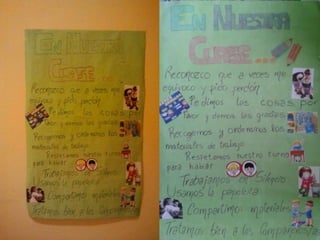 EN NUESTRA
CLASE...
Reconozco que a veces me
equivoco y pido perdón
Pedimos las cosas por
favor y damos las gracias
Recogemos y ordenamos los
materiales de trabajo
Respetamos nuestro turno
para hablar
Trabajamos en silencio
Usamos la papelera
Compartimos materiales
Tratamos bien a los compañeros
EN NUESTRA
CLASE...
Reconozco que a veces me
equivoco y pido perdón
Pedimos las cosas por
favor y damos las gracias
Recogemos y ordenamos los
materiales de trabajo
Respetamos nuestro turno
para hablar
Trabajamos en silencio
Usamos la papelera
Compartimos materiales
Tratamos bien a los compañeros